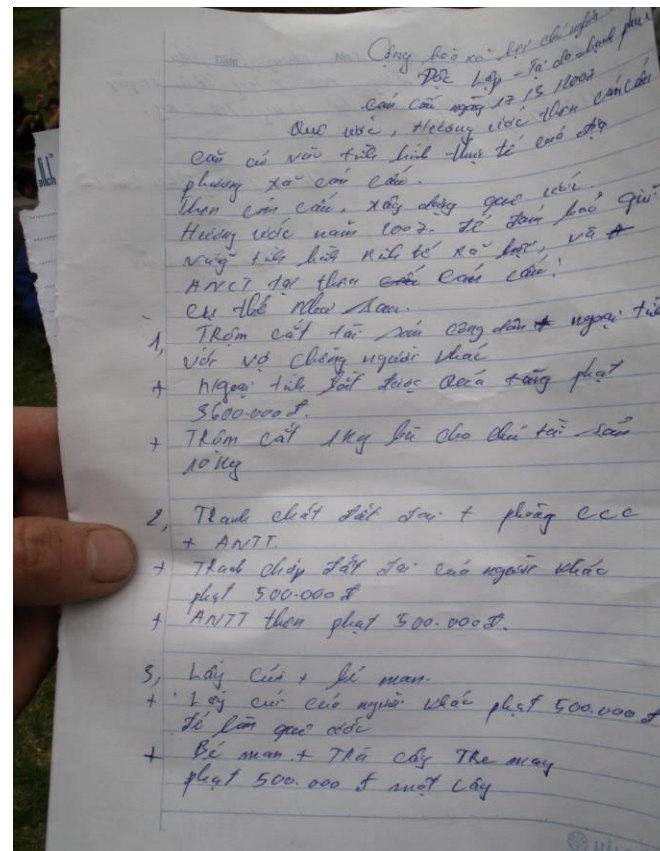 Cộng hoà xã hội chủ nghĩa
Độc Lập - Tự do hạnh phúc
Cán Cấu ngày 17/5/2007
Quê ước, Hương ước thôn cán cấu
Căn cứ vào tình hình thực tế của địa
phương xã cán cấu.
thôn cán cấu, xây dựng quê ước.
Hương ước năm 2007. để đảm bảo giữ
vững tình hình kinh tế xã hội, và
ANCT tại thôn cán cấu!
cụ thể như sau.
1, TRộm cắt tài sản công dân + ngoại tình
với vợ chồng người khác
+ ngoại tình bắt được quả tang phạt
3600.000đ.
+ TRộm cắt 1Kg bù cho chủ tài sản
10Kg
2, TRanh chất đất đai + phòng ccc
+ ANTT.
+ TRanh chấp đất đai của người khác
phạt 500.000đ
+ ANTT thôn phạt 500.000đ.
3, Lấy Củi + bẻ măn.
+ Lấy củi của người khác phạt 500.000đ
để làm quê ước
+ Bẻ man + TRả cây TRe may
phạt 500.000 đ một cây
mich